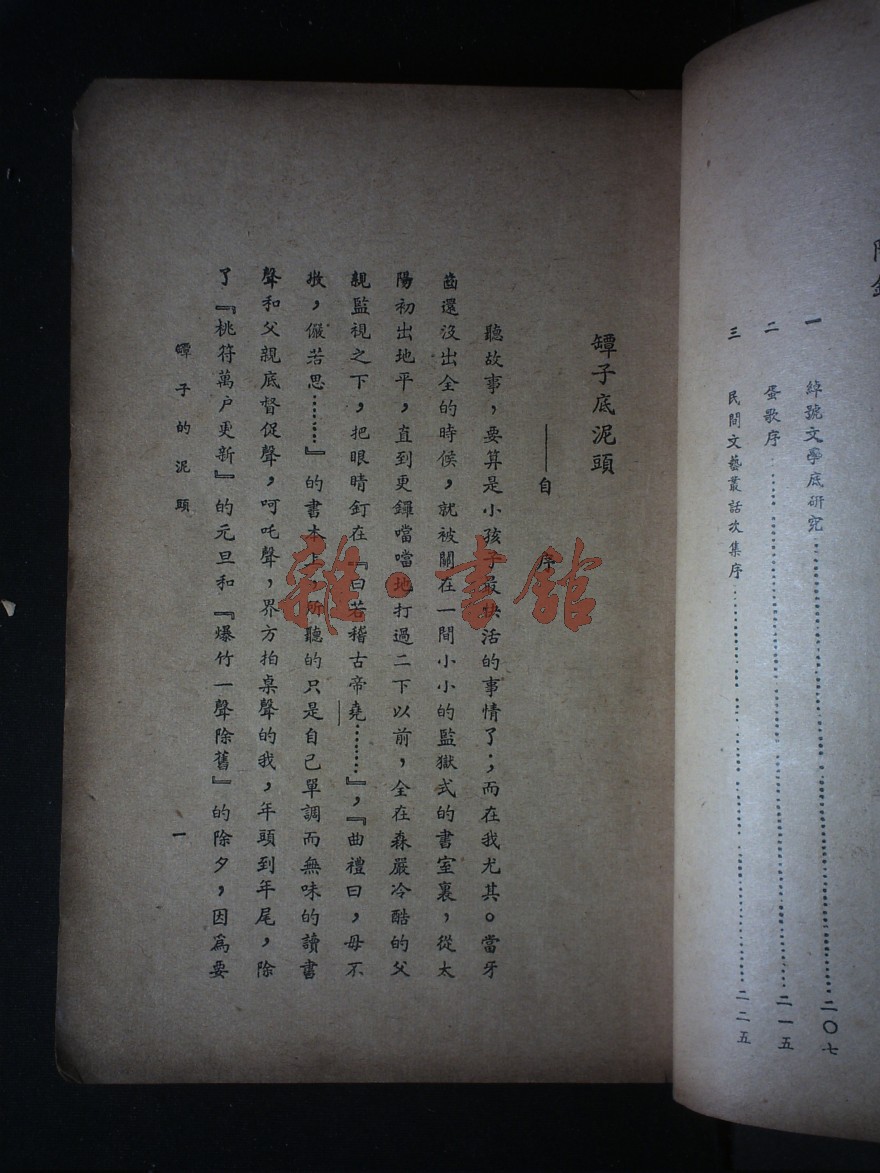 一　綽號文學底研究……二〇七
二　蛋歌序……二一五
三　民間文藝叢話次集序……二二五
罈子底泥頭
——自　序
聽故事，要算是小孩子最快活的事情了；而在我尤其。當牙
齒還沒出全的時候，就被關在一間小小的監獄式的書室裏，從太
陽初出地平，直到更鑼噹噹地打過二下以前，全在森嚴冷酷的父
親監視之下，把眼睛釘在『曰若稽古帝堯………』，『曲禮曰，毋不
敬，儼若思………』的書本上，所聽的只是自己單調而無味的讀書
聲和父親底督促聲，呵吒聲，界方拍桌聲的我，年頭到年尾，除
了『桃符萬户更新』的元旦和『爆竹一聲除舊』的除夕，因爲要
罈子的泥頭
一
雜·書館